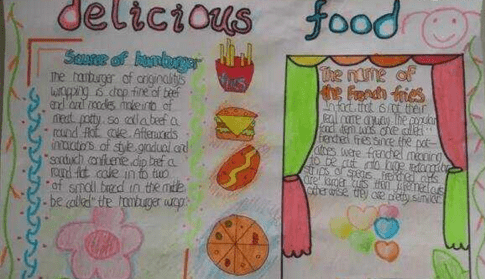 delicious food
Source of hamburger
The hamburger of originalities
wrapping is chop fine of beef
end and noodles make into of
meat patty. so call beef a
round flat cake. Afterwards
innovators of style gradual and
sandwich confluente, clip beef a
round flat cake in to two
of small bread in the middle
be called" the hamburger wrap
fries
The name of
the French fries
In fact that is not their
real name anyway. The popular
food item was one called"
frenched fries since the pot-
atoes were frenched meaning
to be cut into long rectangular
strips of spears. Frenched cuts
are larger cuts than
otherwise they are pretty similar.